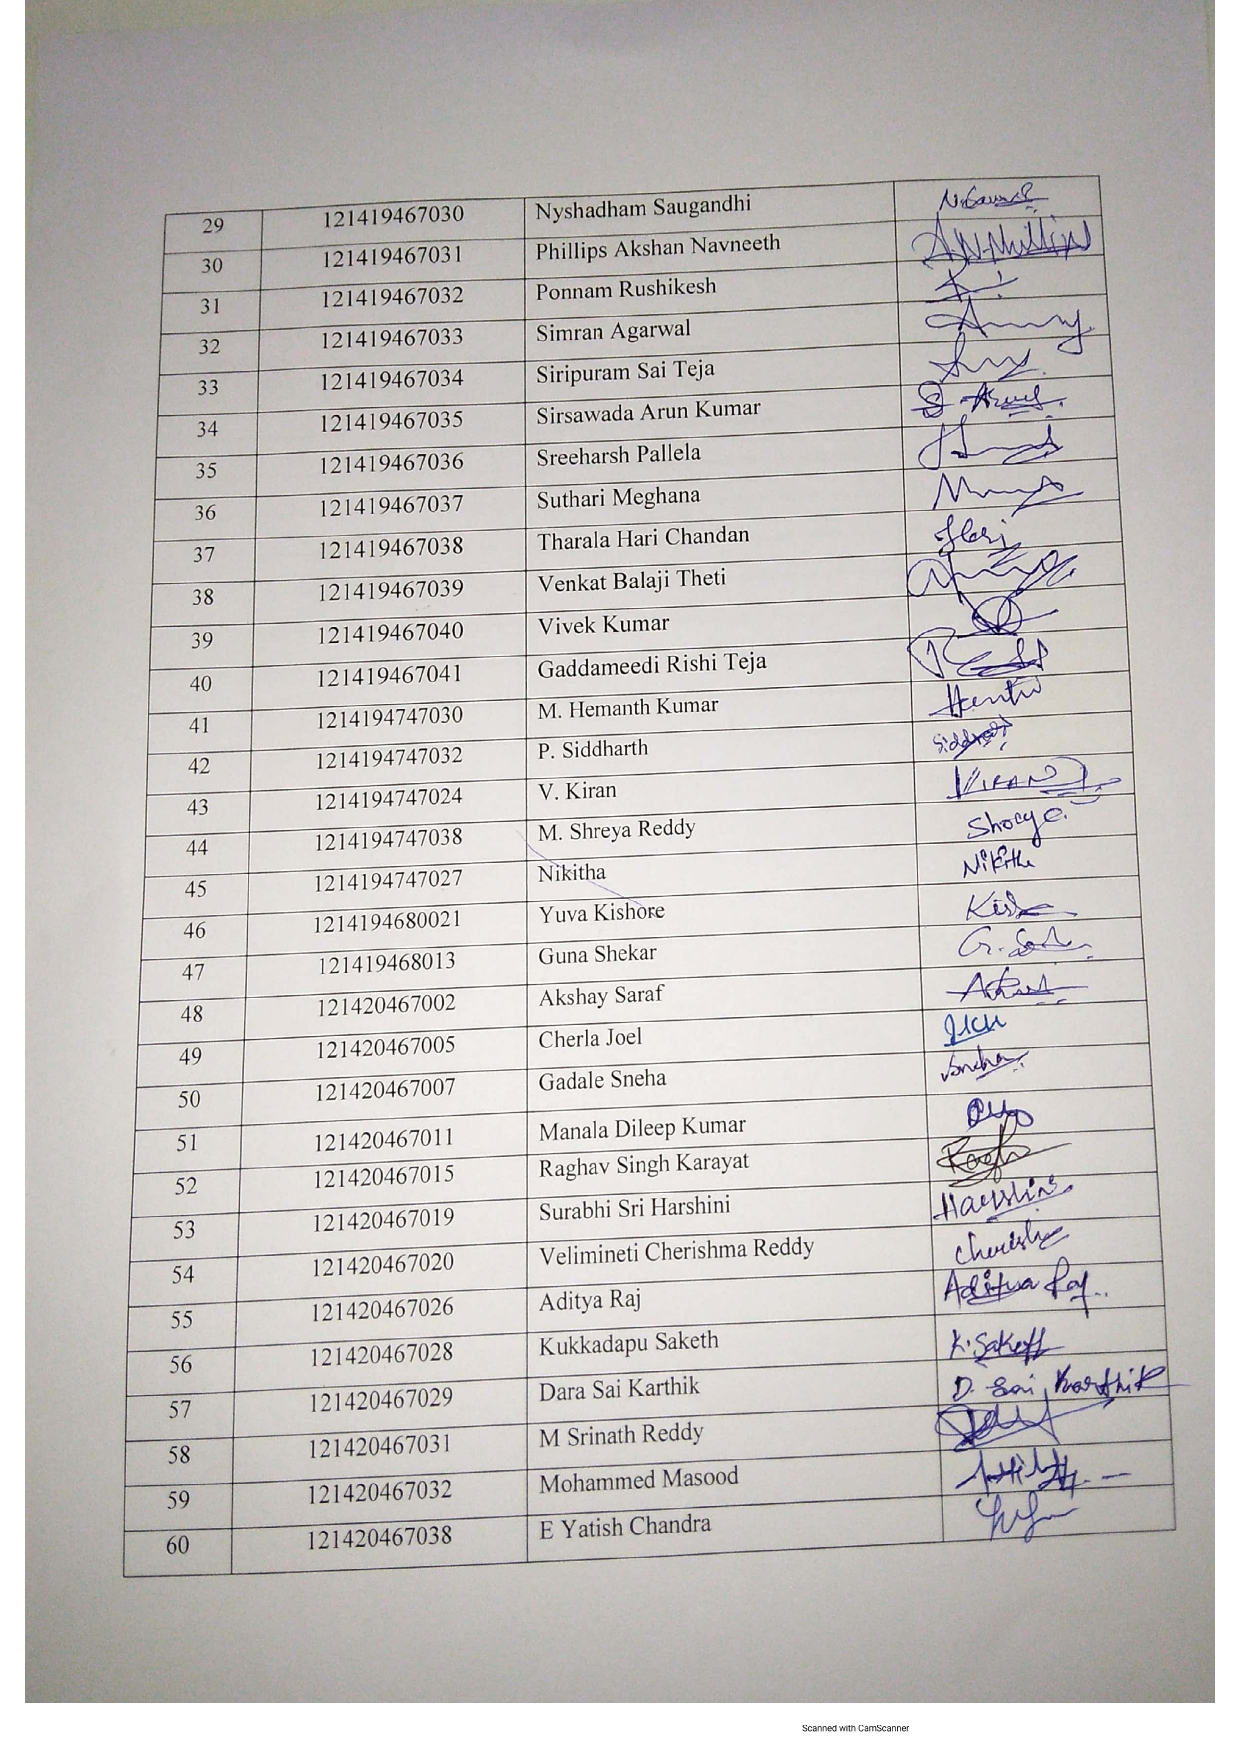 29 121419467030 Nyshadham Saugandhi
30 121419467031 Phillips Akshan Navneeth
31 121419467032 Ponnam Rushikesh
32 121419467033 Simran Agarwal
33 121419467034 Siripuram Sai Teja
34 121419467035 Sirsawada Arun Kumar
35 121419467036 Sreeharsh Pallela
36 121419467037 Suthari Meghana
37 121419467038 Tharala Hari Chandan Hari
38 121419467039 Venkat Balaji Theti
39 121419467040 Vivek Kumar
40 121419467041 Gaddameedi Rishi Teja
41 1214194747030 M. Hemanth Kumar
42 1214194747032 P. Siddharth
43 1214194747024 V. Kiran
44 1214194747038 M. Shreya Reddy
45 1214194747027 Nikitha Nikitha
46 1214194680021 Yuva Kishore
47 121419468013 Guna Shekar
48 121420467002 Akshay Saraf
49 121420467005 Cherla Joel
50 121420467007 Gadale Sneha Sneha
51 121420467011 Manala Dileep Kumar
52 121420467015 Raghav Singh Karayat
53 121420467019 Surabhi Sri Harshini Harshini
54 121420467020 Velimineti Cherishma Reddy
55 121420467026 Aditya Raj Aditya Raj
56 121420467028 Kukkadapu Saketh K. Saketh
57 121420467029 Dara Sai Karthik D. Sai Karthik
58 121420467031 M Srinath Reddy
59 121420467032 Mohammed Masood
60 121420467038 E Yatish Chandra
Scanned with CamScanner